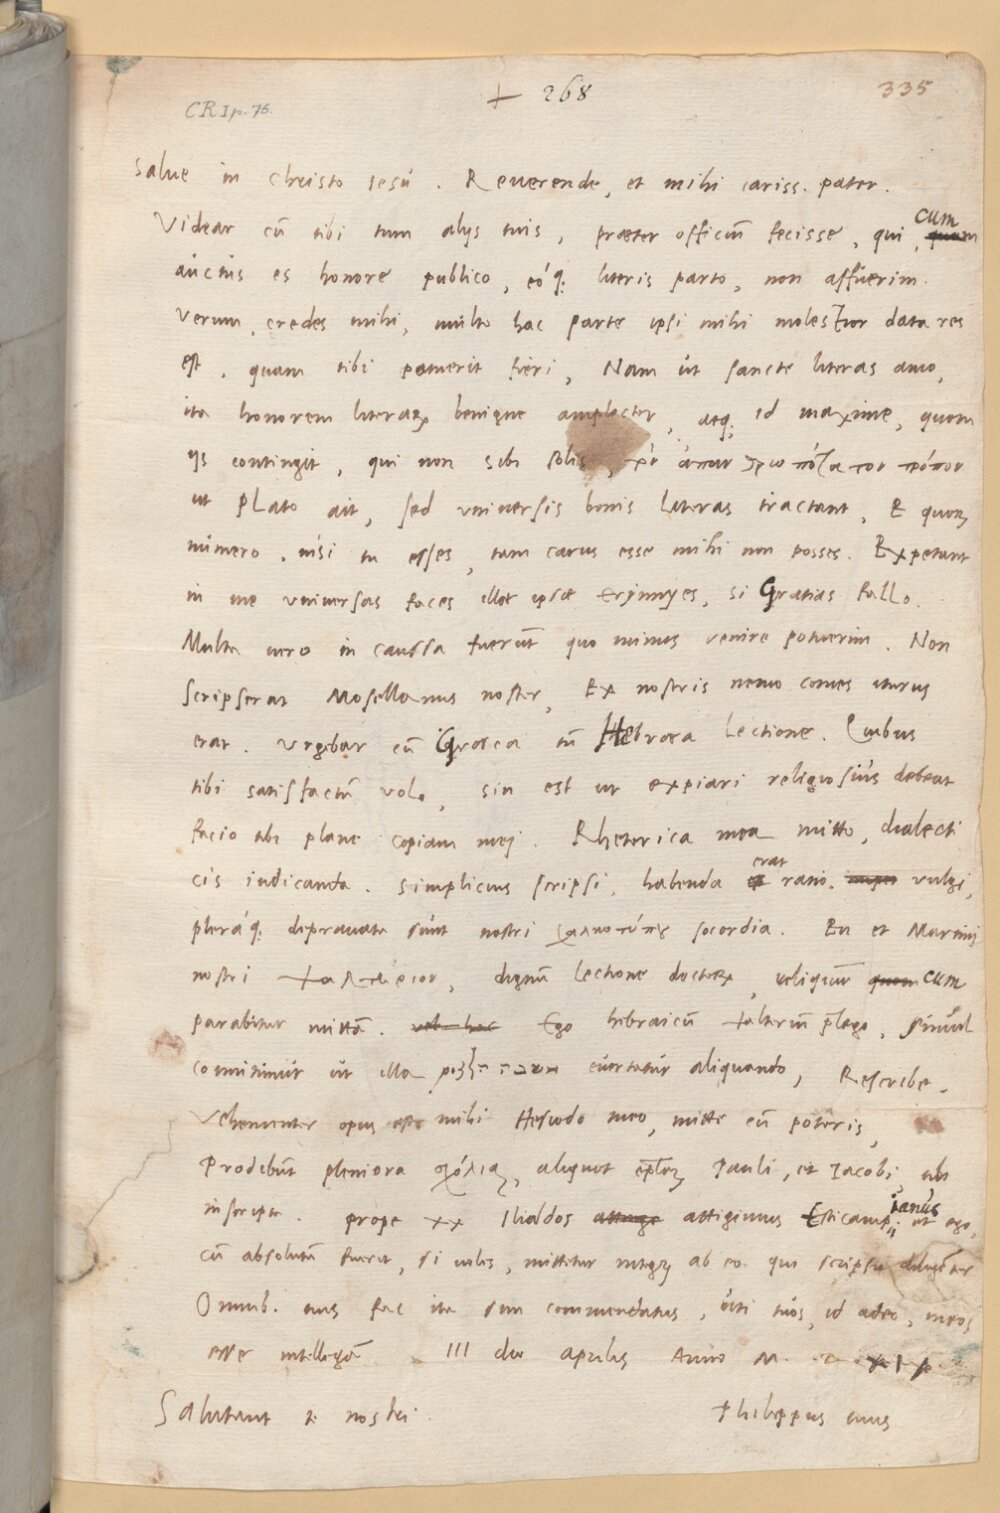 CR I p. 76.
+ 268
335
Salve in Christo Iesu . Reverende, et mihi cariss. pater.
Videar cū tibi tum alijs tuis, præter officiū fecisse, qui, quom cum
auctus es honore publico, eoq; literis parto, non affuerim.
Verum, credes mihi, multo hac parte ipsi mihi molestior data res
est, quam tibi potuerit fieri, Nam ut sancte literas amo,
ita honorem literarꝝ benigne amplector, atq; id maxime, quom
ijs contingit, qui non sibi solis,
ut Plato ait, sed universis bonis literas tractant, E quorꝝ
numero, nisi tu esses, tam carus esse mihi non posses. Expetant
in me universas faces illæ ipsæ Erynnyes, si Gratias fallo.
Multa vero in caussa fuerūt quo minus venire potuerim. Non
scripserat Mosellanus noster, Ex nostris nemo comes iturus
erat. Urgebar cū Græca tū Hebræa Lectione. Quibus
tibi satisfactū volo, sin est ut expiari religiosius debeat
facio tibi plane copiam mej. Rhetorica mea mitto, dialecti
cis iudicanda. Simplicius scripsi, habenda erat ratio vulgi,
pleraq; depravata sunt nostri χαλκοτύπου socordia. En et Martini
nostri ψαλτήριον, dignū lectione doctorꝝ, reliquum quom cum
parabitur mittā. vel hac Ego hebraicū psalteriū plego, simul
connitimur ut illa evertatur aliquando, Rescribe.
Vehementer opus est mihi Hesiodo meo, mitte cū poteris,
Prodibūt pleniora σχόλια, aliquot eplarꝝ Pauli, et Iacobi,
inscripta. prope xx Iliados attinge attigimus Esticampianus ut ego,
cū absolutū fuerit, si voles, mittetur integrꝝ ab eo qui scripsit diligēter
Omnib. tuis fac ita sim commendatus, uti tuos, id adeo, meos
esse intellegā III die aprilis Anno M. D. XIX
Salutant te nostri. Philippus tuus